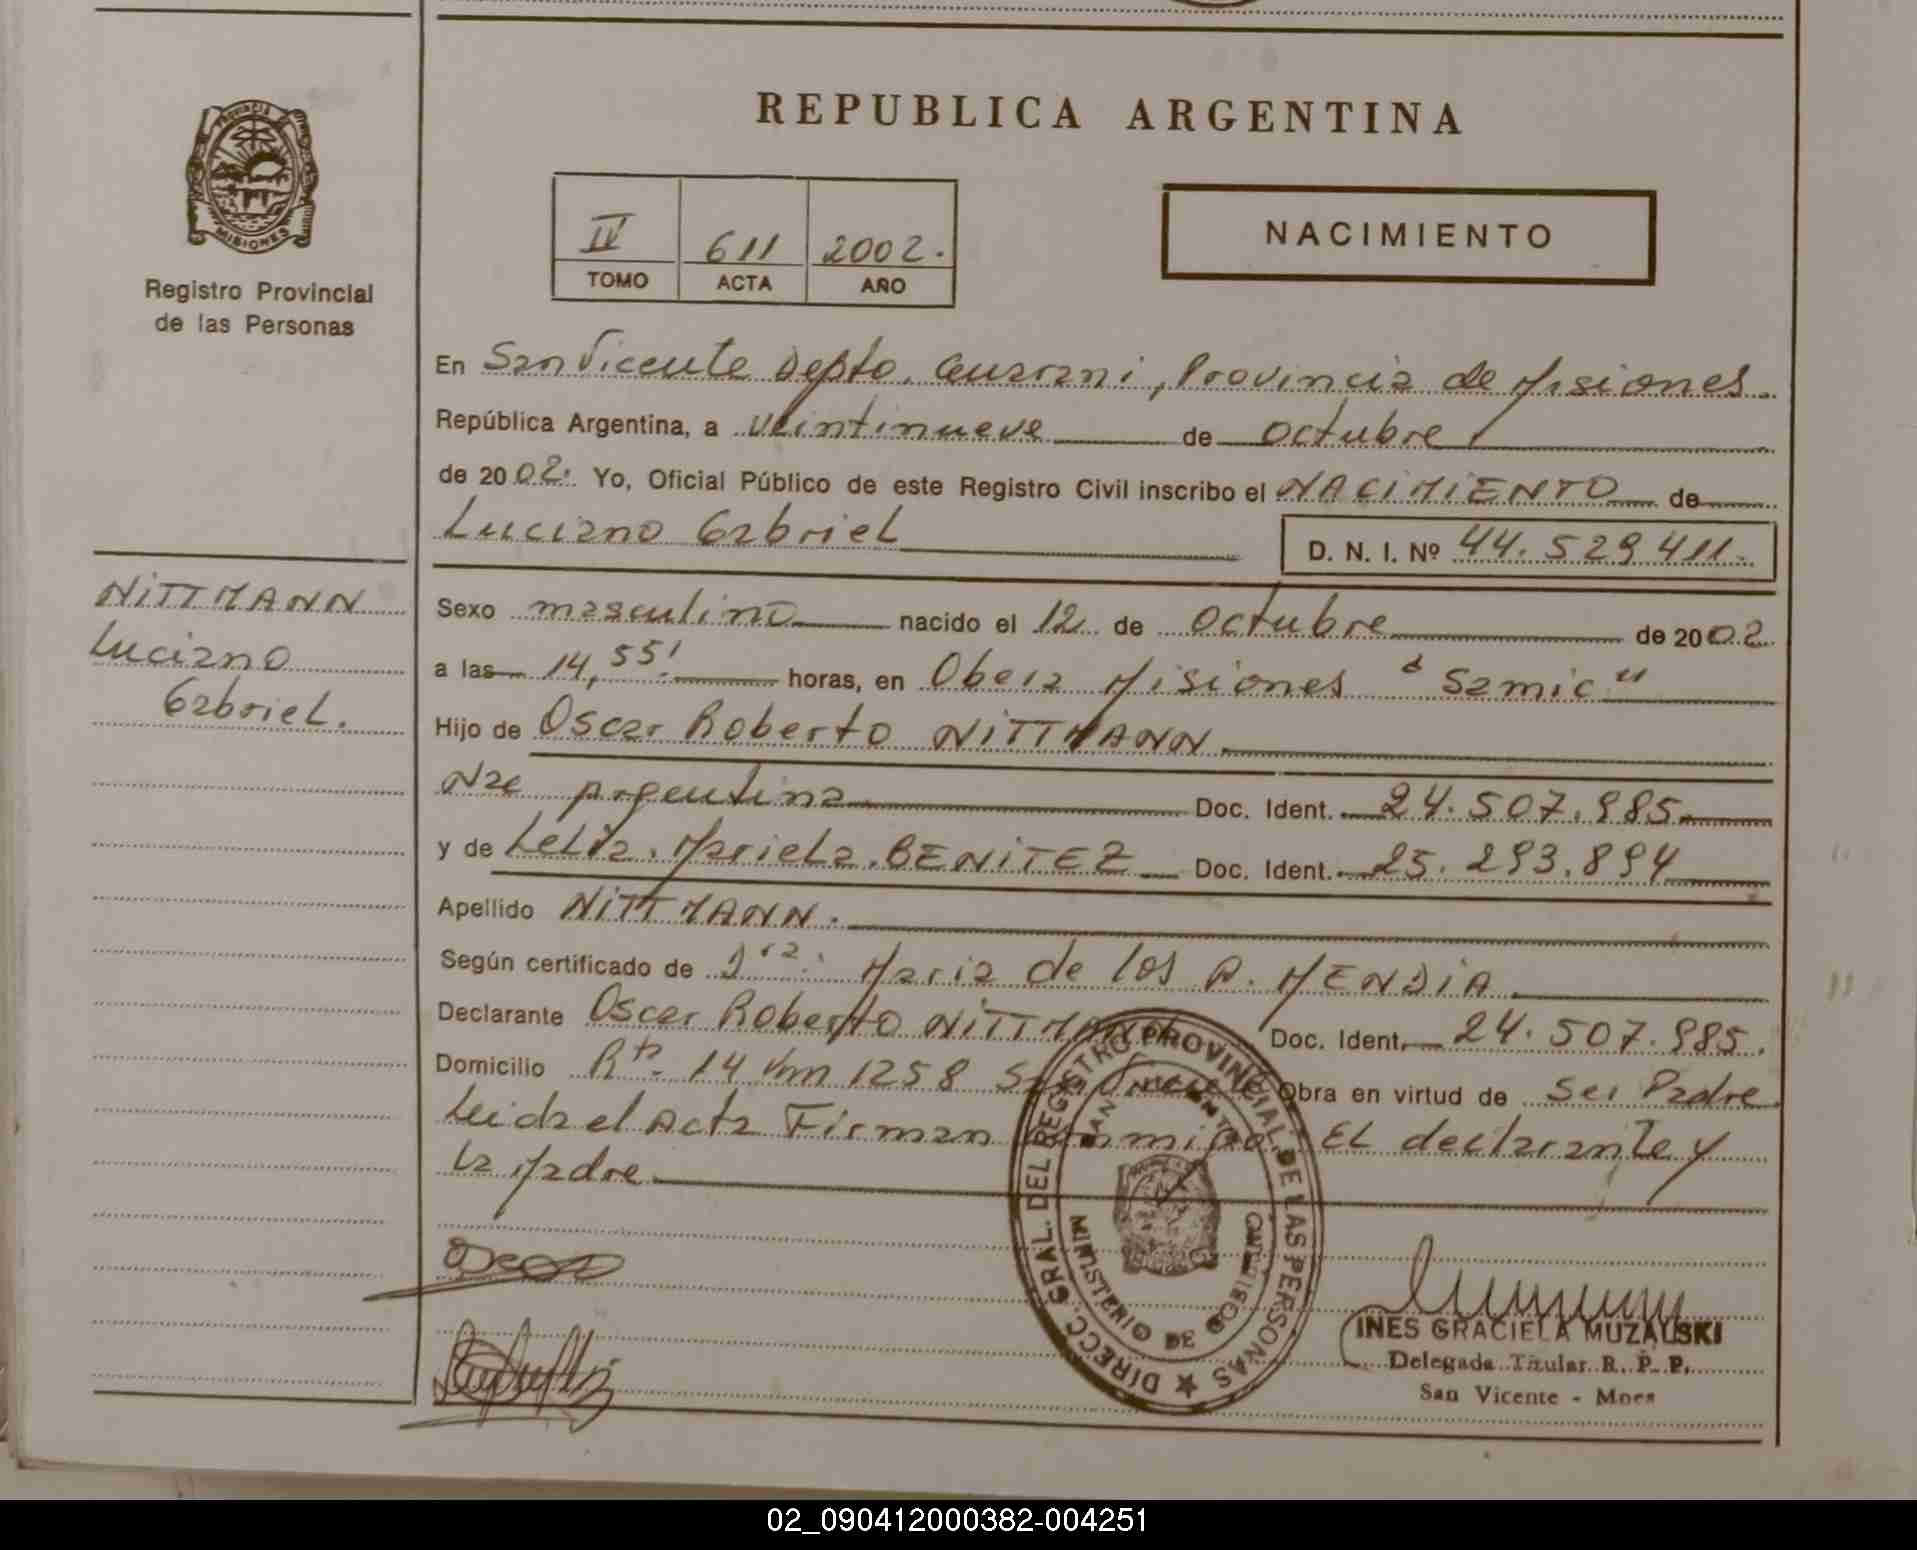 REPUBLICA ARGENTINA
PROVINCIA DE
MISIONES
Registro Provincial
de las Personas
IV 611 2002.
TOMO ACTA AÑO
NACIMIENTO
En San Vicente Depto. Guarani, Provincia de Misiones
República Argentina, a veintinueve de octubre
de 2002. Yo, Oficial Público de este Registro Civil inscribo el NACIMIENTO de
Luciano Gabriel D. N. I. Nº 44.529.411.
NITTMANN
Luciano
Gabriel.
Sexo masculino nacido el 12 de octubre de 2002
a las 14,55' horas, en Obera Misiones "Samic"
Hijo de Oscar Roberto NITTMANN
Nac Argentina Doc. Ident. 24.507.985
y de Lelia Mariela BENITEZ Doc. Ident. 25.293.894
Apellido NITTMANN.
Según certificado de Dra: Maria de los A. MENDIA
Declarante Oscar Roberto NITTMANN Doc. Ident. 24.507.985.
Domicilio Rta. 14 km 1258 San Vicente Obra en virtud de Ser Padre
Leida el Acta Firman conmigo EL declarante y
la Madre
DIRECC. GRAL. DEL REGISTRO PROVINCIAL DE LAS PERSONAS
SAN VICENTE
MINISTERIO DE GOBIERNO
INES GRACIELA MUZALSKI
Delegada Titular R. P. P.
San Vicente - Mnes
02_090412000382-004251